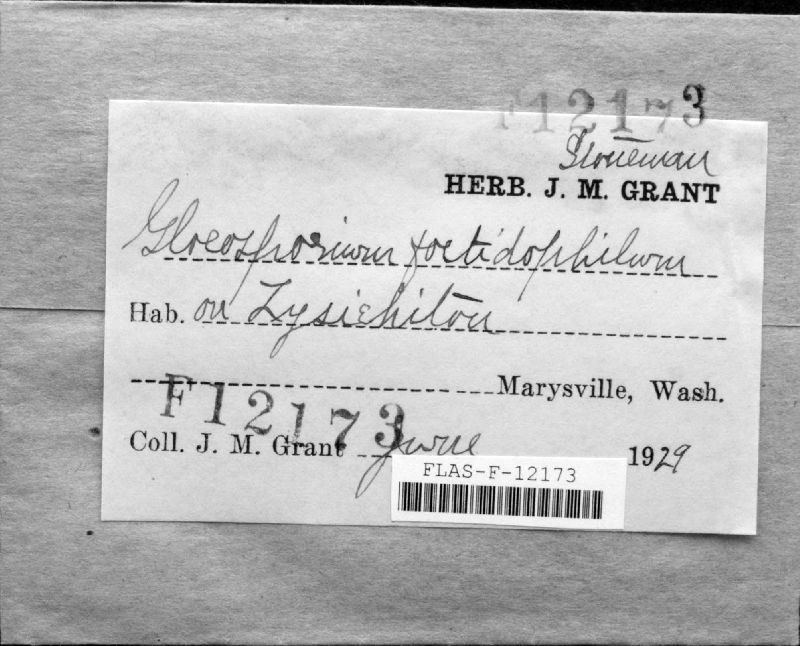 F12173
Stoneman
HERB. J. M. GRANT
Gloeosporium foetidophilum
Hab. on Lysichiton
Marysville, Wash.
F12173
Coll. J. M. Grant June 1929
FLAS-F-12173